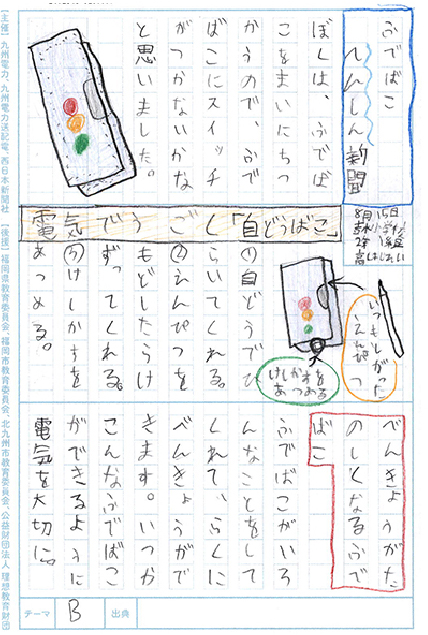 ふでばこ
へんしん新聞
ぼくは、ふでば
こをまいにちつ
かうので、ふで
ばこにスイッチ
がつかないかな
と思いました。
8月15日
電気でうごく「自どうばこ」
①自どうでひ
らいてくれる。
②えんぴつを
もどしたらけ
ずってくれる。
③けしかすを
あつめる。
いつもとがった
えんぴつ
けしかすを
あつめる
べんきょうがた
のしくなるふで
ばこ
ふでばこがいろ
んなことをして
くれて、らくに
べんきょうがで
きます。いつか
こんなふでばこ
ができるように
電気を大切に。
テーマ
B
出典
【主催】九州電力、九州電力送配電、西日本新聞社 【後援】福岡県教育委員会、福岡市教育委員会、北九州市教育委員会、公益財団法人 理想教育財団